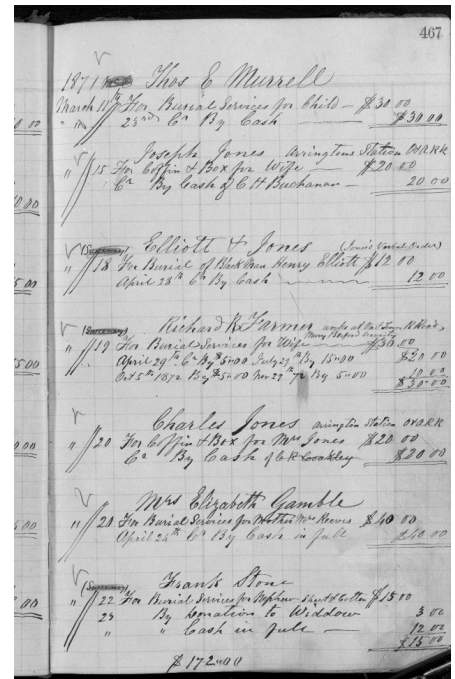 467
1871 Thos E Murrell
March 11th For Burial Services for Child — $30 00
" " 23rd Cr By Cash — $30 00
Joseph Jones Arringtons Station OVARR
" 15 For Coffin & Box for Wife — $20 00
Cr By Cash of C H Buchanan — 20 00
Elliott & Jones (Jones Verbal Order)
" 18 For Burial of Black Man Henry Elliott $12 00
April 28th Cr By Cash 12 00
Richard K Farmer works at R Road
" 19 For Burial Services for Wife $30 00
April 29th Cr By $5 00 July 29th By 15 00 $20 00
Oct 5th 1872 By $5 00 Nov 29th 72 By 5 00 10 00
$30 00
Charles Jones Arrington Station OVARR
" 20 For Coffin & Box for Mrs Jones $20 00
Cr By Cash of C K Coakley $20 00
Mrs Elizabeth Gamble
" 20 For Burial Services for Mother Mrs Reeves $40 00
April 24th Cr By Cash in full $40 00
Frank Stone
" 22 For Burial Services for Nephew Short & Cotton $15 00
23 By Donation to Widdow 3 00
" " Cash in full — 12 00
$15 00
$172 00